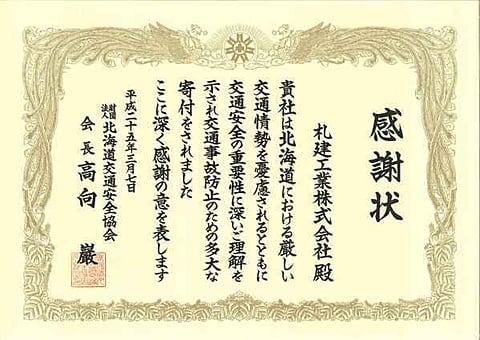 感謝状
札建工業株式会社 殿
貴社は北海道における厳しい
交通情勢を憂慮されるとともに
交通安全の重要性に深いご理解を
示され交通事故防止のための多大な
寄付をされました
ここに深く感謝の意を表します
平成二十五年三月七日
財団法人 北海道交通安全協会
会長 高向 巌